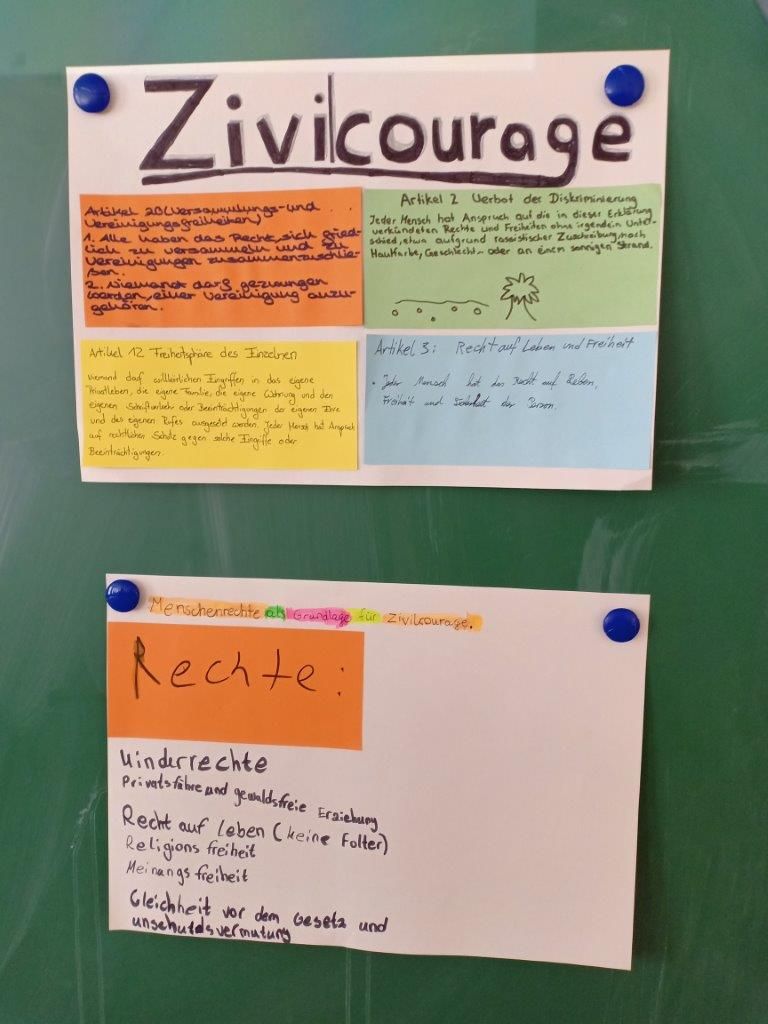 Zivilcourage
Artikel 20 (Versammlungs- und
Vereinigungsfreiheiten)
1. Alle haben das Recht, sich fried-
lich zu versammeln und zu
Vereinigungen zusammenzuschlie-
ßen.
2. Niemand darf gezwungen
werden, einer Vereinigung anzu-
gehören.
Artikel 2 Verbot der Diskriminierung
Jeder Mensch hat Anspruch auf die in dieser Erklärung
verkündeten Rechte und Freiheiten ohne irgendein Unter-
schied, etwa aufgrund rassistischer Zuschreibung, nach
Hautfarbe, Geschlecht- oder an einem sonnigen Strand.
Artikel 12 Freiheitsphäre des Einzelnen
Niemand darf willkürlichen Eingriffen in das eigene
Privatleben, die eigene Familie, die eigene Wohnung und den
eigenen Schriftverkehr oder Beeinträchtigungen der eigenen Ehre
und des eigenen Rufes ausgesetzt werden. Jeder Mensch hat Anspruch
auf rechtlichen Schutz gegen solche Eingriffe oder
Beeinträchtigungen.
Artikel 3: Recht auf Leben und Freiheit
• Jeder Mensch hat das Recht auf Leben,
Freiheit und Sicherheit der Person.
Menschenrechte als Grundlage für Zivilcourage.
Rechte:
Kinderrechte
Privatsfähre und gewaldsfreie Erziehung
Recht auf Leben (keine Folter)
Religions freiheit
Meinungs freiheit
Gleichheit vor dem Gesetz und
unschuldsvermutung